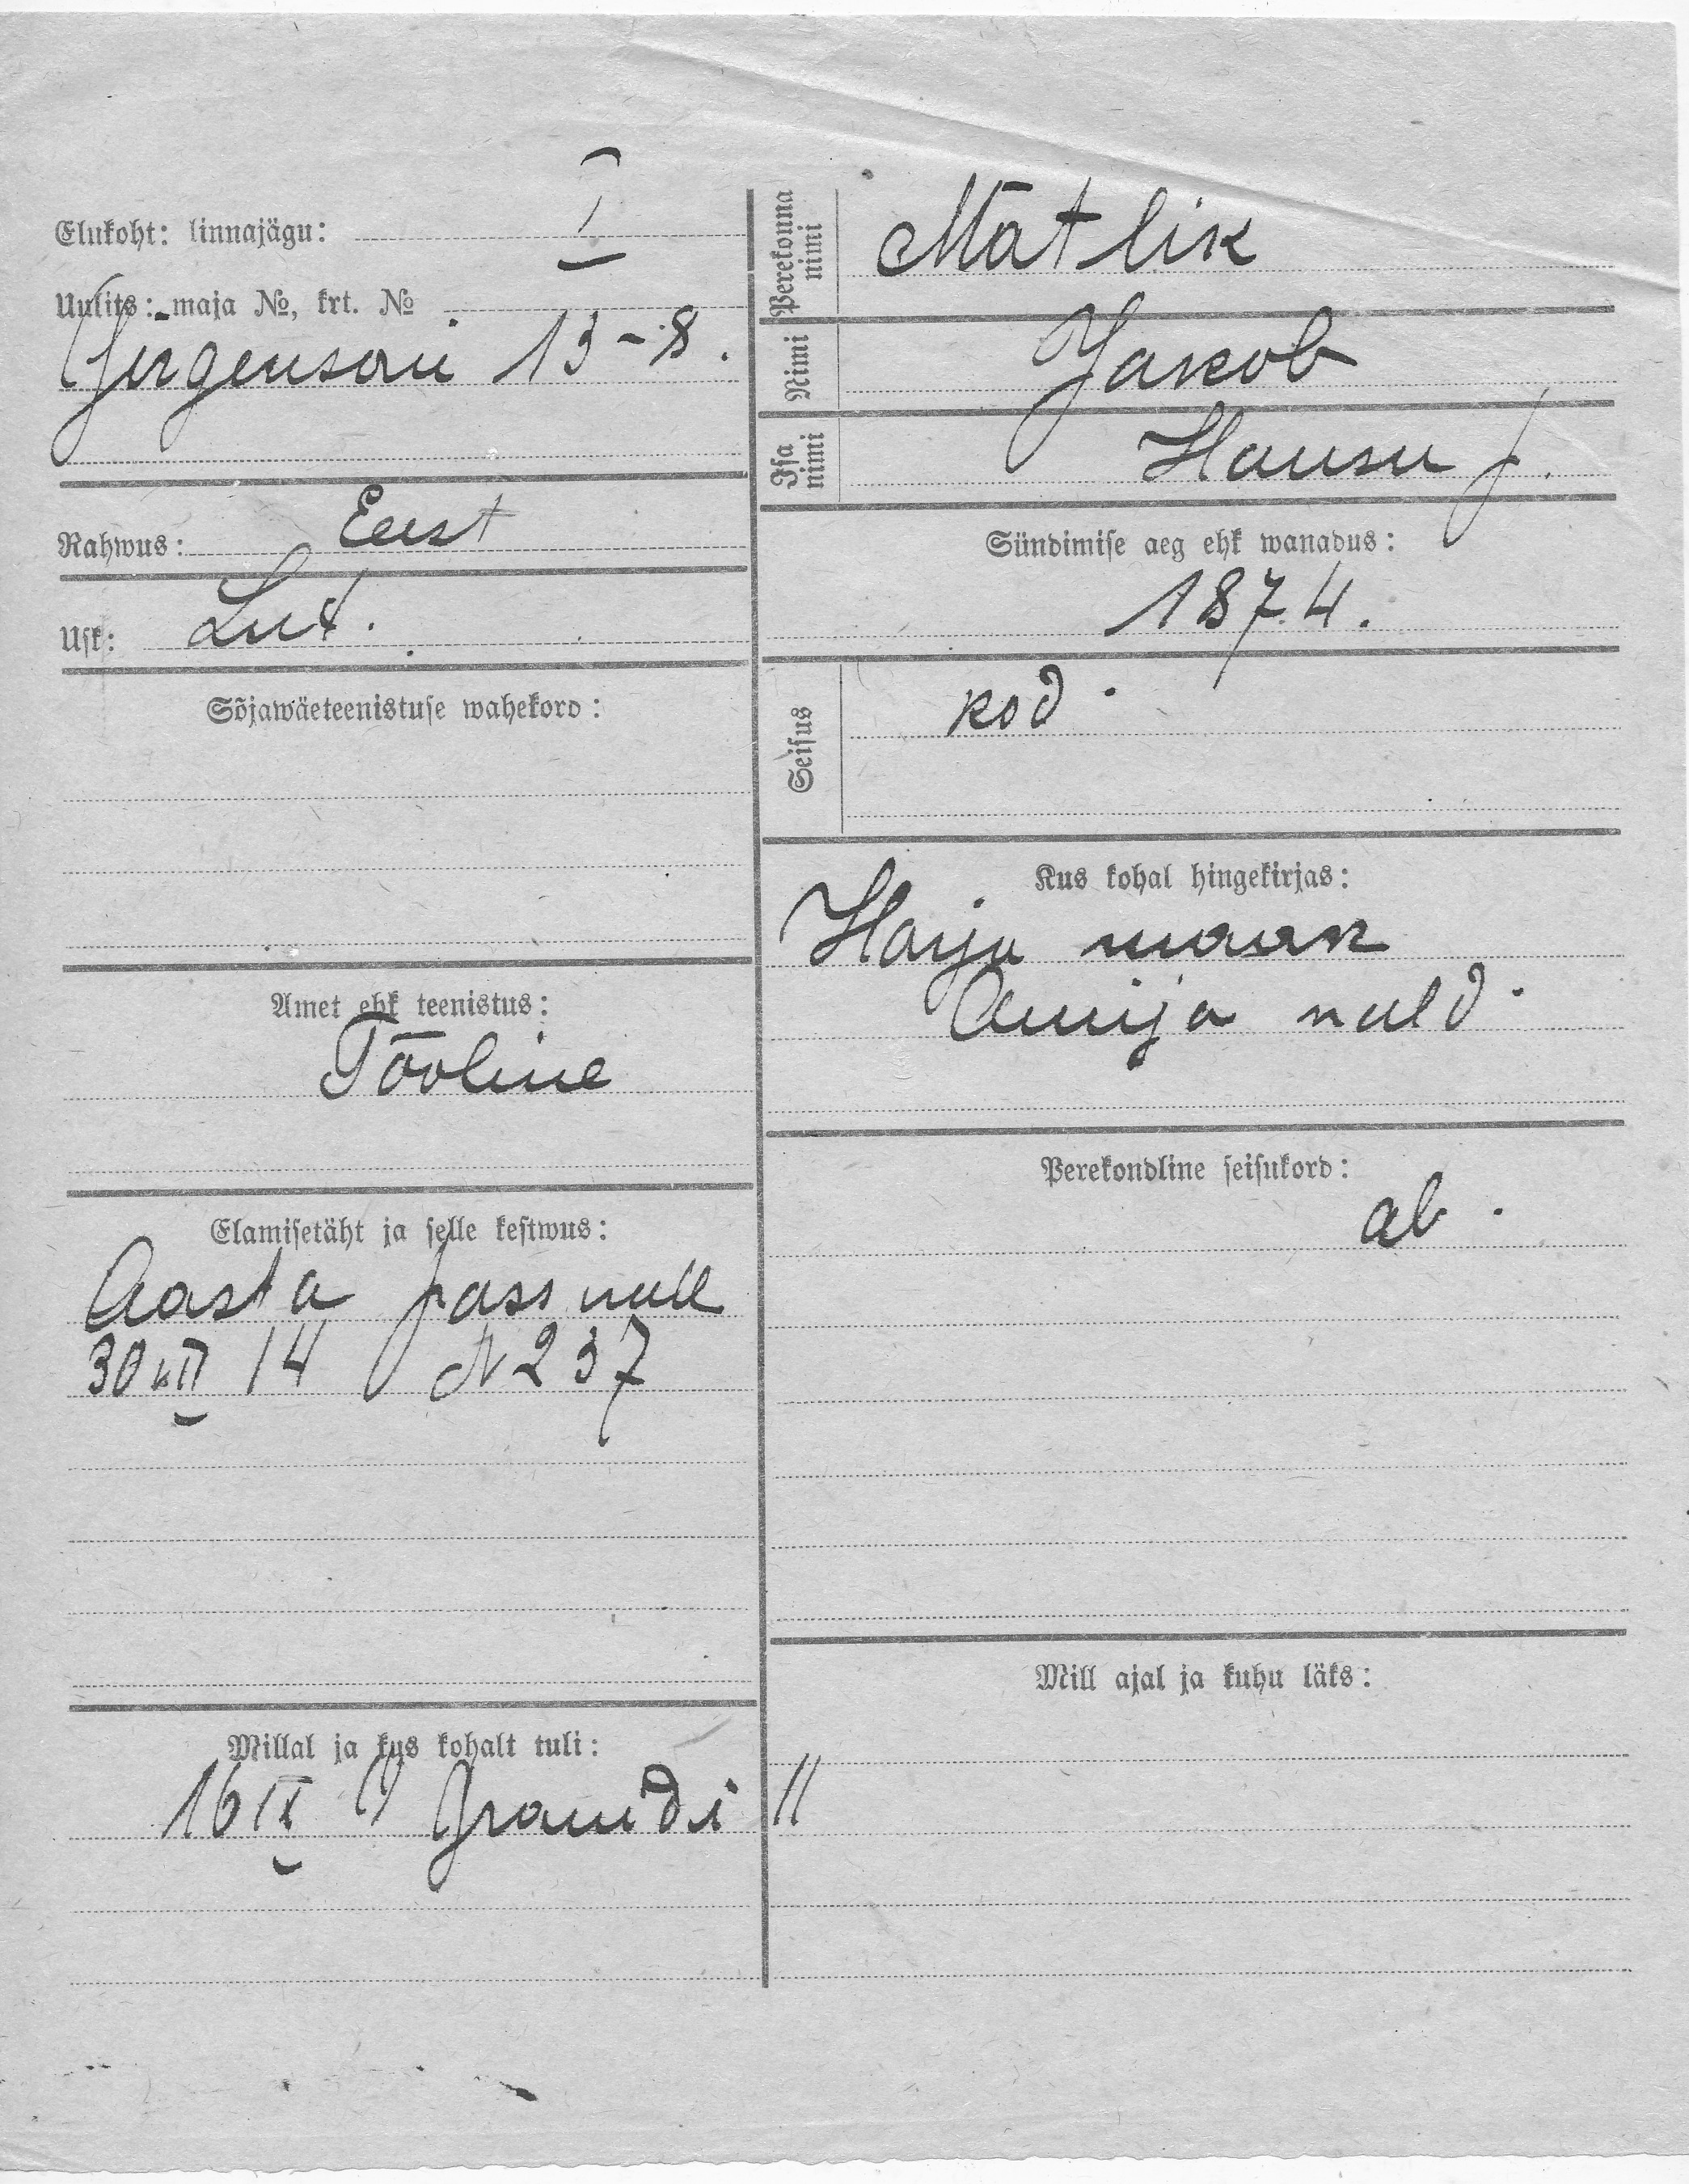 Elukoht: linnajägu: I
Uulits: maja №, krt. №
Jürgensoni 13-8.
Rahwus: Eest
Usk: Lut.
Sõjawäeteenistuse wahekord:
Amet ehk teenistus:
Tööline
Elamisetäht ja selle kestwus:
Aasta pass
30 VII 14 N 237
Millal ja kus kohalt tuli:
16 IX
Perekonna nimi Mätlik
Nimi Jakob
Isa nimi Hansu p.
Sündimise aeg ehk wanadus:
1874.
Seisus kod.
Kus kohal hingekirjas:
Harju maak
Anija wald.
Perekondline seisukord:
ab.
Mill ajal ja kuhu läks: